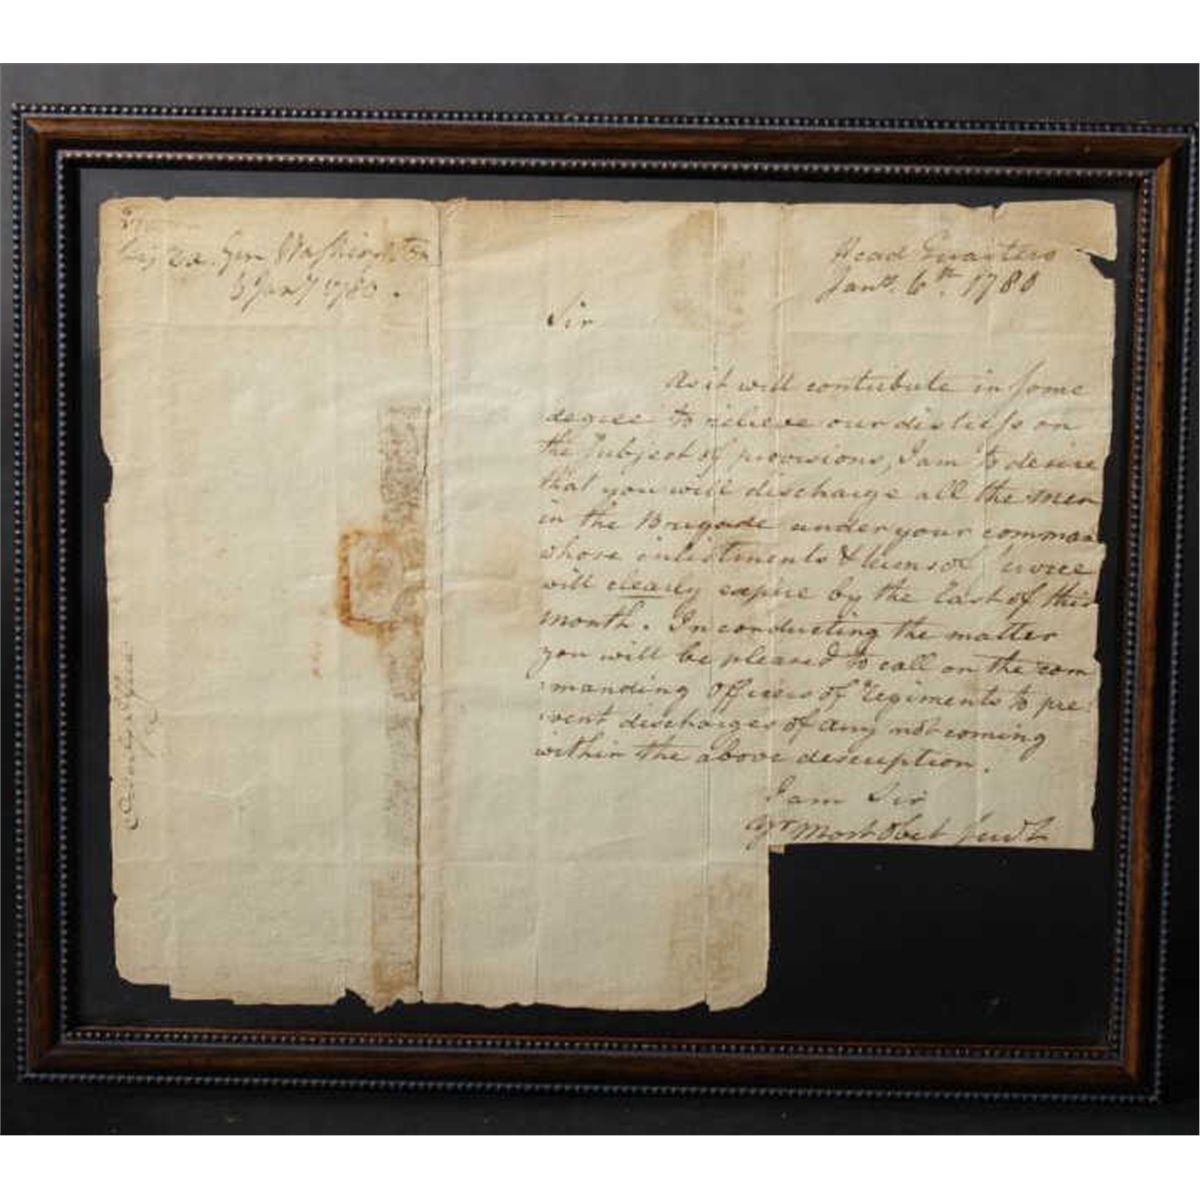 Gen Washington
6 Jany 1780.
Head Quarters
Jany. 6th. 1780
Sir
As it will contribute in some
degree to relieve our distress on
the subject of provisions, I am to desire
that you will discharge all the men
in the Brigade under your comman
whose inlistments & terms of service
will clearly expire by the last of this
month. In conducting the matter
you will be pleased to call on the com
manding Officers of Regiments to pre
vent discharges of any not coming
within the above description.
I am Sir
Yr Most Obet Servt